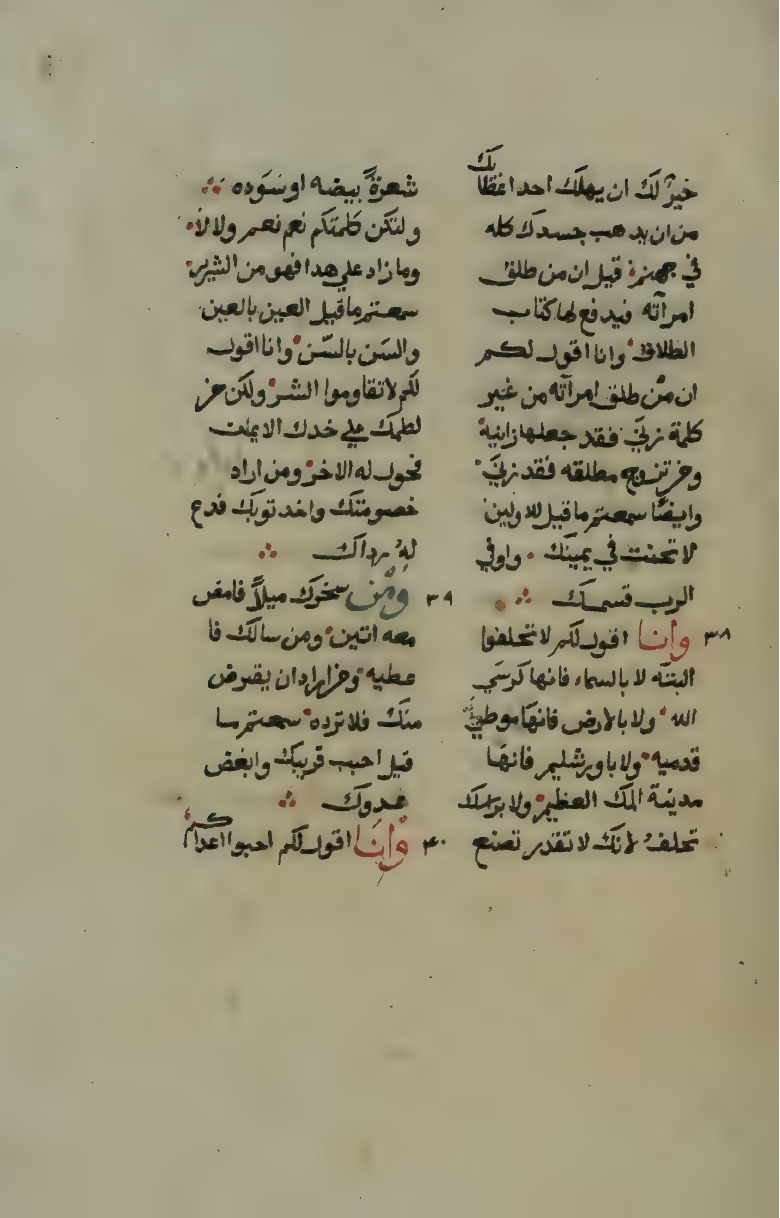 خيرٌ لك ان يهلك احد اعظائك
من ان يدهب جسدك كله
في جهنم قيل ان من طلق
امرآته فيدفع لها كتاب
الطلاق وانا اقول لكم
ان من طلق امرآته من غير
كلمة زنيَ فقد جعلها زانيه
ومن تزوج مطلقه فقد زنيَ
وايضًا سمعتم ما قيل للاولين
لا تحنت في يمينك واوفي
الرب قسمك
٣٨ وانا اقول لكم لا تحلفوا
البتّه لا بالسماء فانها كرسَي
الله ولا بالارض فانهَا موطي
قدميه ولا باورشليم فانهَا
مدينة الملك العظيم ولا براسك
تحلف لانك لا تقدر تصنع
شعرةً بيضه او سَوده
ولتكن كلمتكم نعم نعم ولا لا
وما زاد علي هدا فهو من الشرير
سمعتم ما قيل العين بالعين
والسَن بالسّن وانا اقول
لكم لا تقاوموا الشر ولكن من
لطمك علي خدك الايمن
فحول له الاخر ومن اراد
خصومتك واخد توبك فدع
لهُ رداك
٣٩ ومن سخرك ميلاً فامض
معه اتنين ومن سالك فا
عطيه ومن اراد ان يقترض
منك فلا ترده سمعتم ما
قيل احبب قريبك وابغض
عدوك
٤٠ وانَا اقول لكم احبوا اعداكم